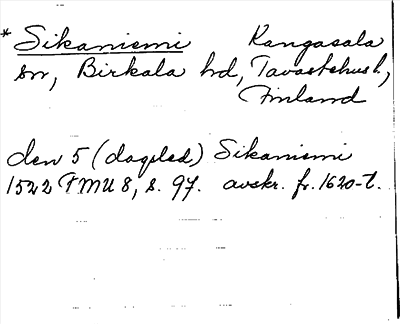 * Sikaniemi Kangasala
sn, Birkala hd, Tavastehus l.,
Finland
den 5 (dagsled) Sikaniemi
1522 FMU 8, s. 97. avskr. fr. 1620-t.